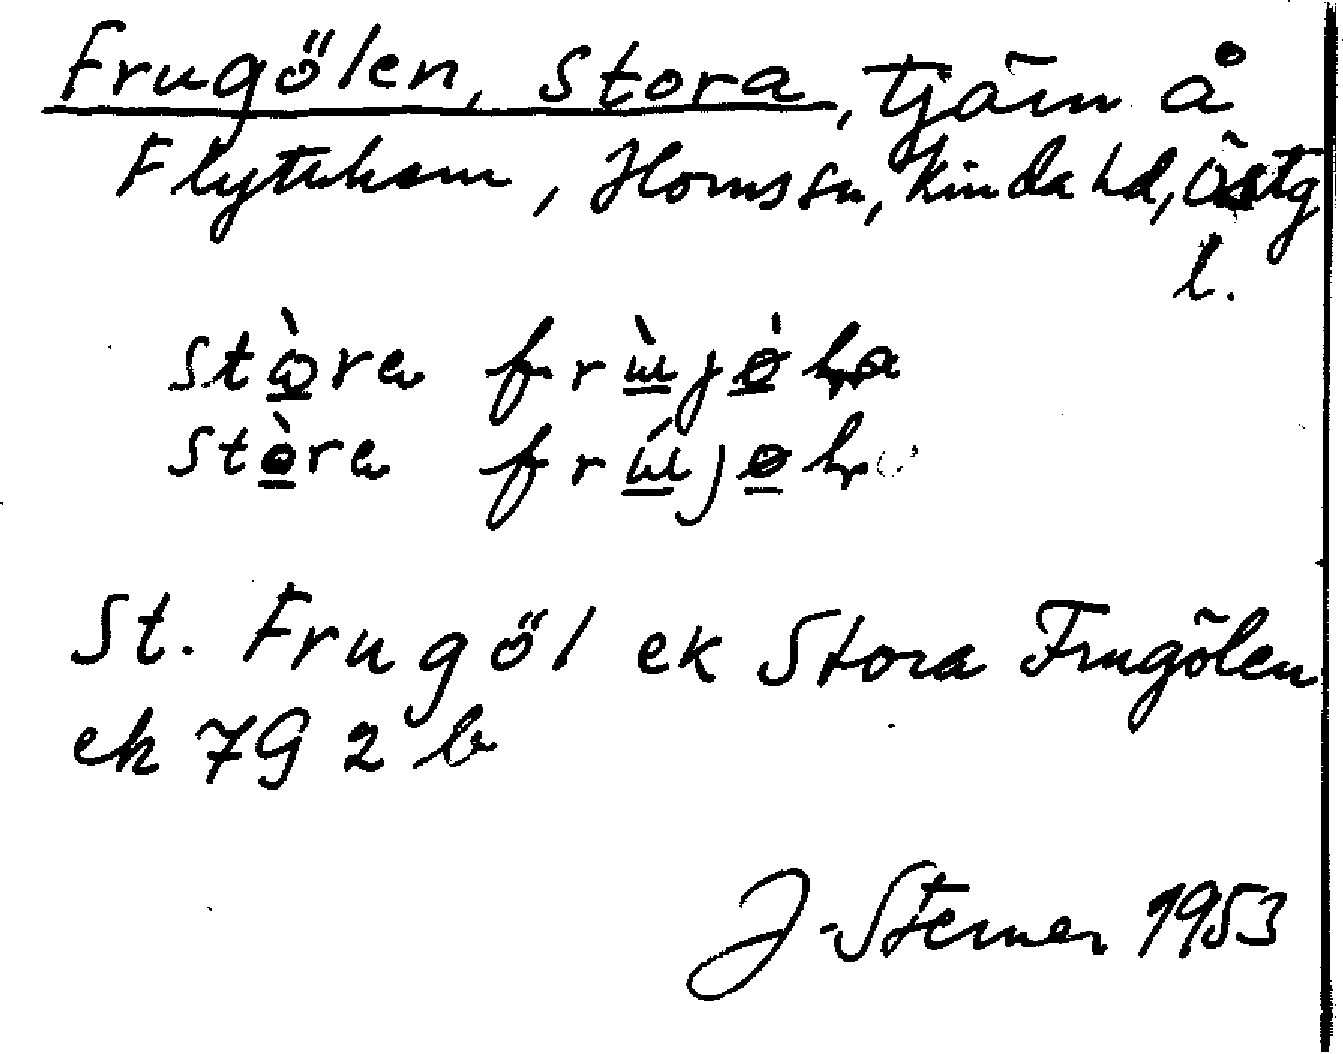 Frugölen, Stora, Tjärn å
Flytthem, Horns sn, Kinda hd, Östg
l.
Stòra frùjö̀
Stòra frújö
St. Frugöl ek Stora Frugölen
ek 7G 2 b
J. Sterner 1953